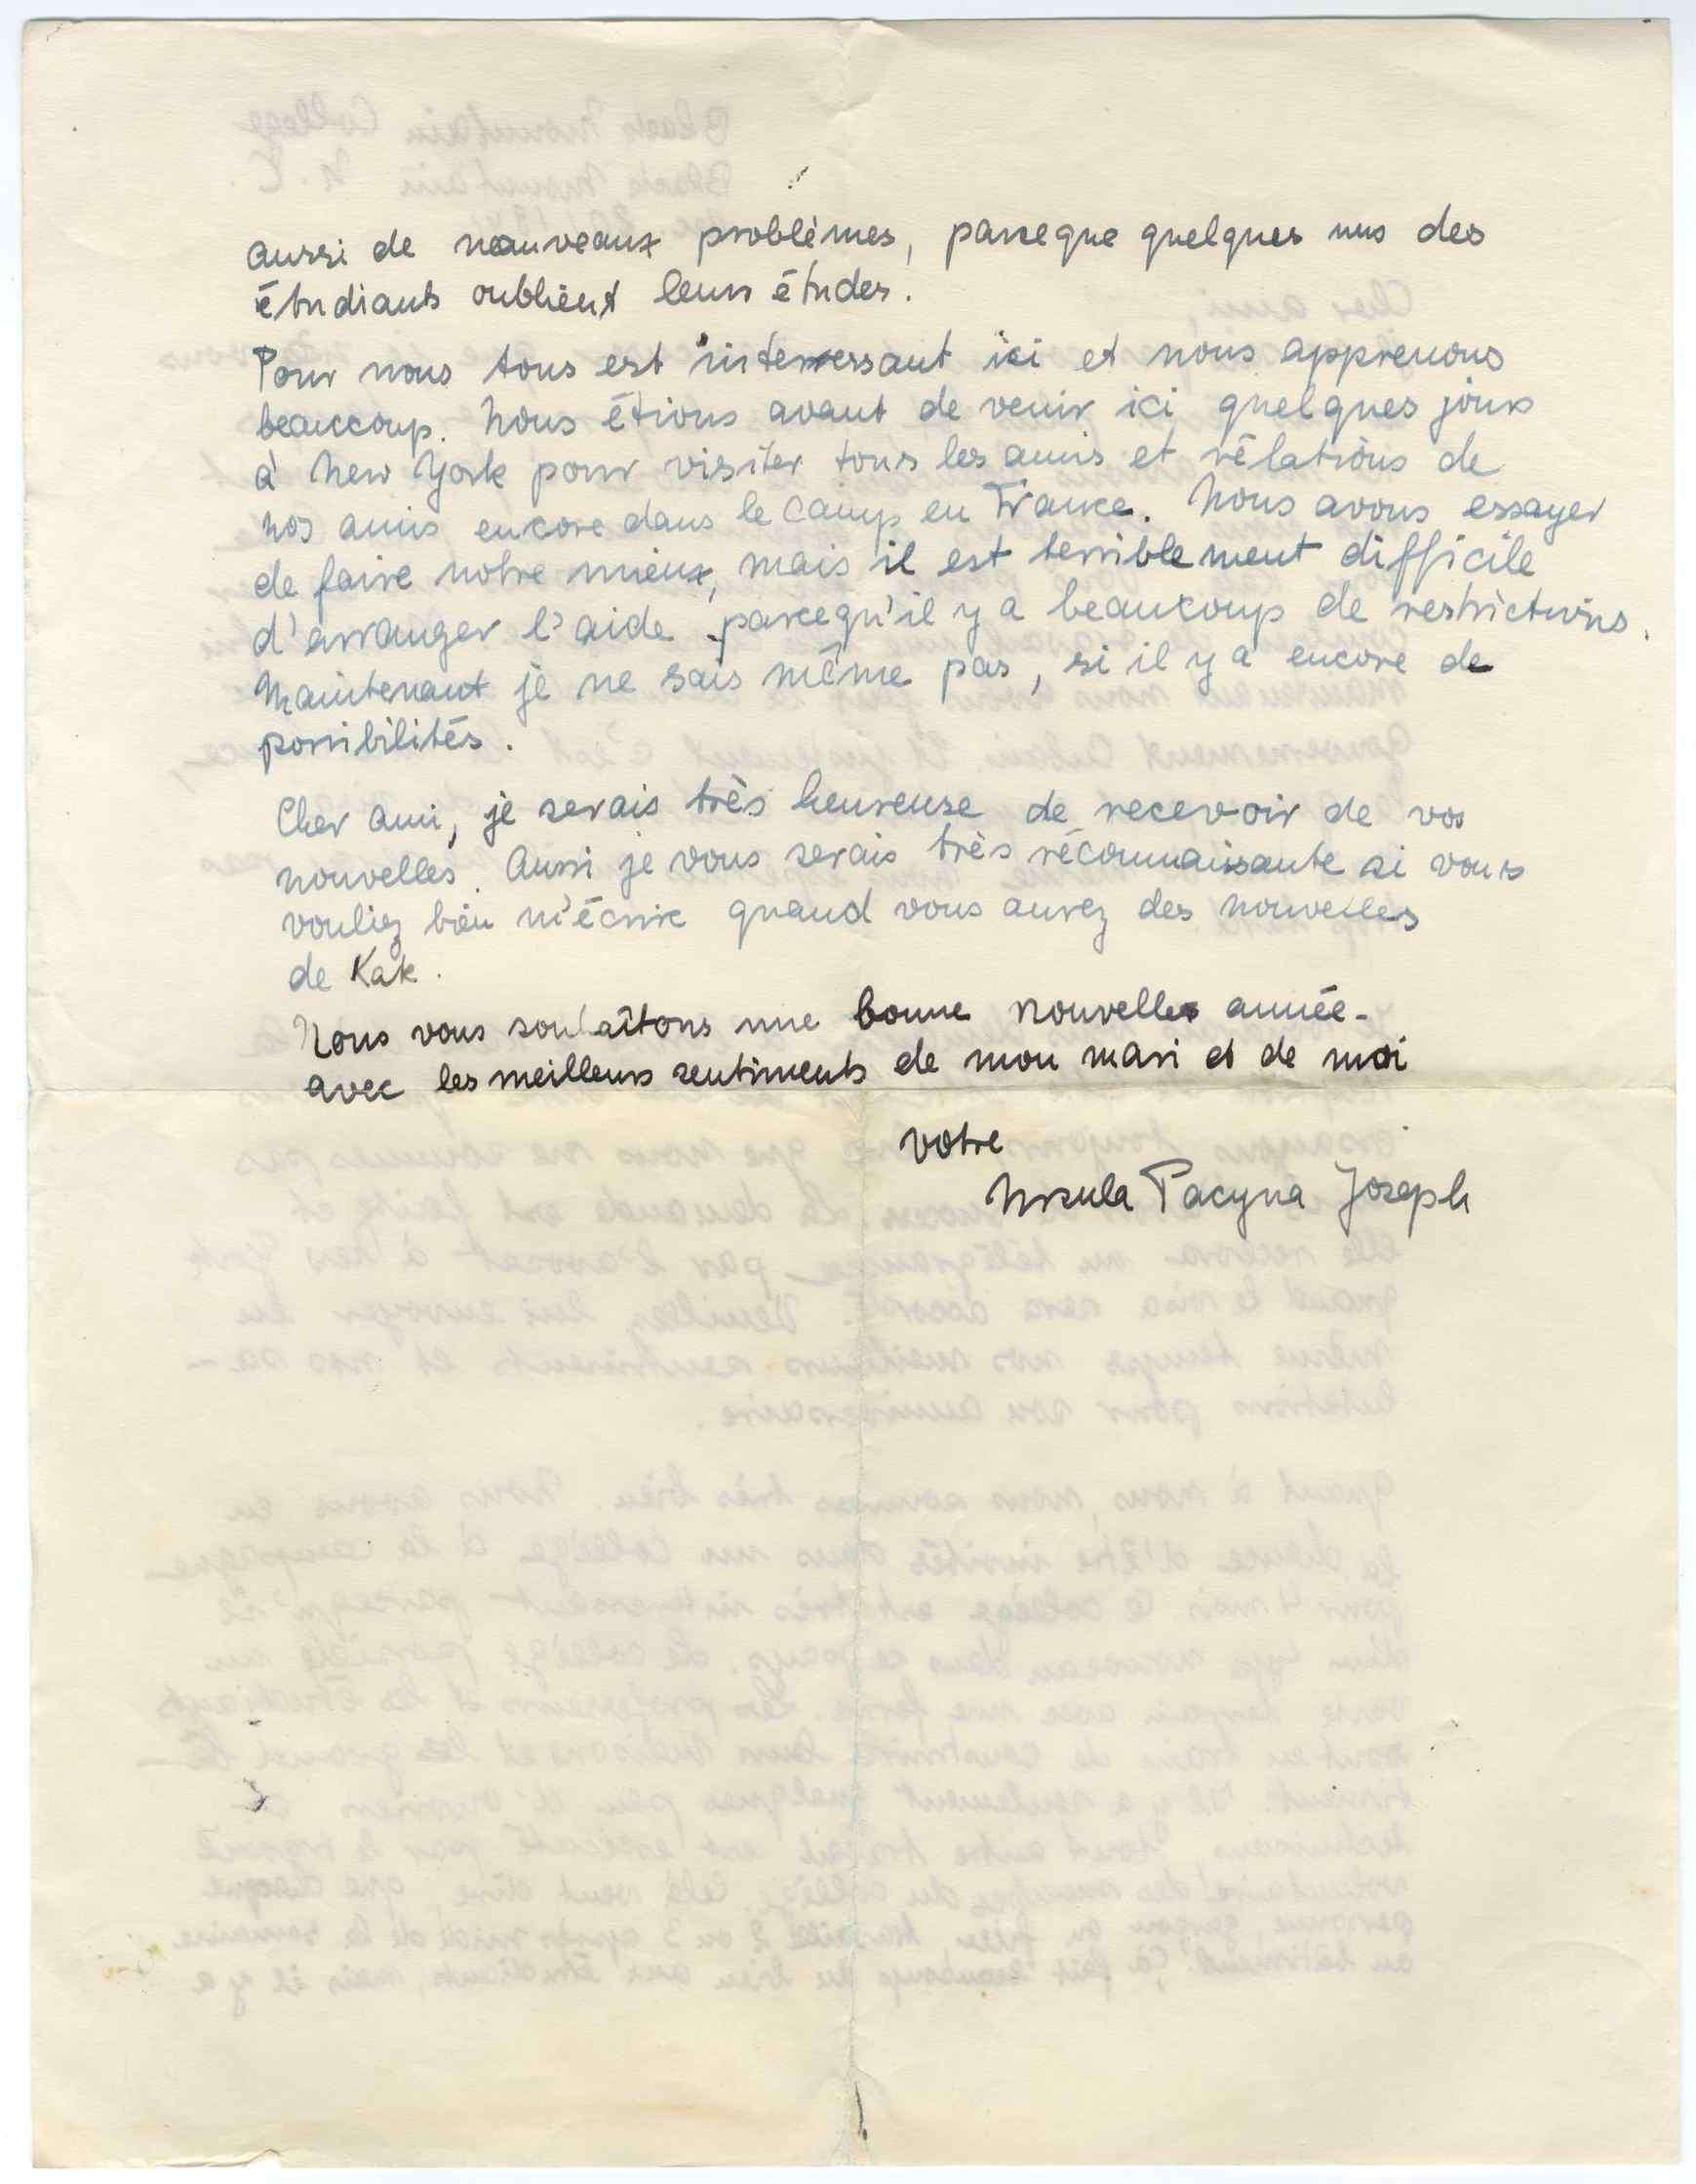 aussi de nouveaux problèmes, parceque quelques uns des
étudiants oublient leurs études.
Pour nous tous est interressant ici et nous apprenons
beauccoup. Nous étions avant de venir ici quelques jours
à New York pour visiter tous les amis et rélations de
nos amis encore dans le Camp en France. Nous avons essayer
de faire notre mieux, mais il est terriblement difficile
d'arranger l'aide parcequ'il y a beaucoup de restrictions.
Maintenant je ne sais même pas, si il y a encore de
possibilités.
Cher ami, je serais très heureuse de recevoir de vos
nouvelles. Aussi je vous serais très réconnaissante si vous
vouliez bien m'écrire quand vous aurez des nouvelles
de Kak.
Nous vous souhaîtons une bonne nouvelle année-
avec les meilleurs sentiments de mon mari et de moi
votre
Ursula Pacyna Joseph